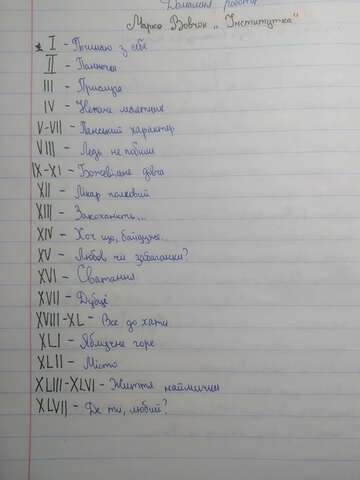 Домашня робота
Марко Вовчок „Інститутка"
I - Почнемо з себе
II - Панночка
III - Прислуга
IV - Нежане маятник
V-VII - Панський характер
VIII - Ледь не побили
IX-XI - Божевільне дівча
XII - Лікар полковий
XIII - Закоханість...
XIV - Хоч що, байдуже...
XV - Любов чи забаганки?
XVI - Сватання
XVII - Дубці
XVIII-XL - Все до хати
XLI - Яблучне горе
XLII - Місто
XLIII-XLVI - Життя наймички
XLVII - Де ти, любий?